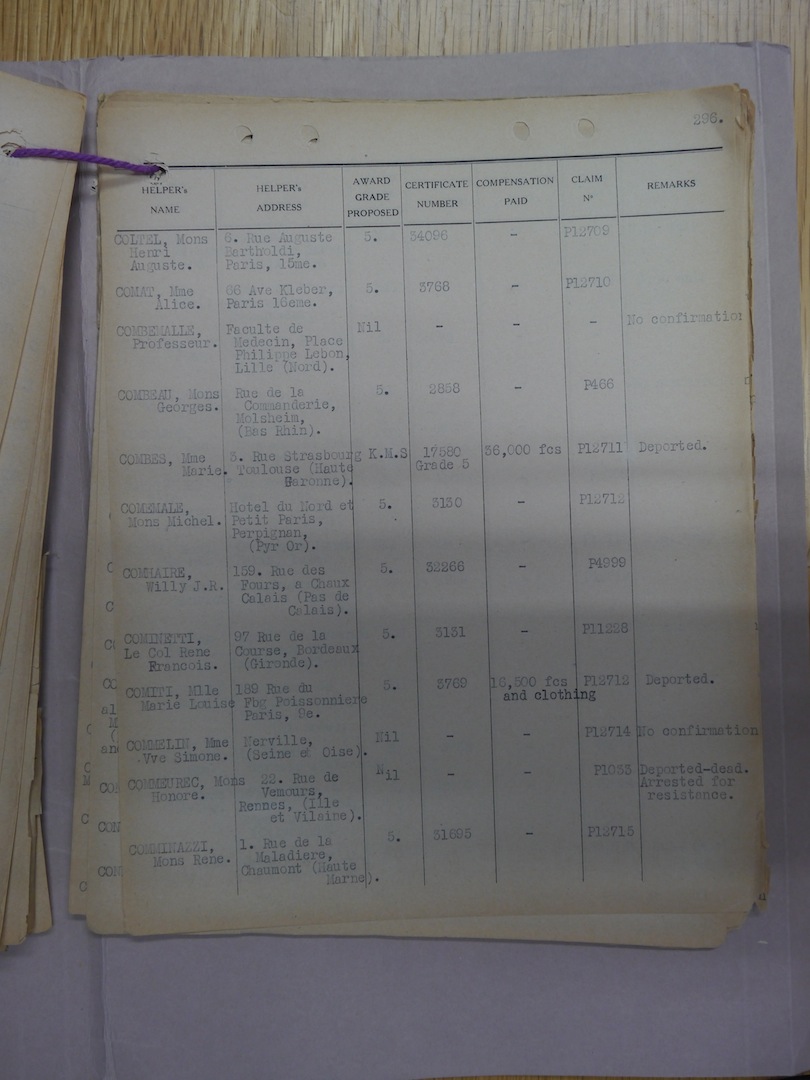 296.
HELPER's NAME | HELPER's ADDRESS | AWARD GRADE PROPOSED | CERTIFICATE NUMBER | COMPENSATION PAID | CLAIM N° | REMARKS
COLTEL, Mons | 6. Rue Auguste | 5. | 34096 | - | P12709
Henri | Bartholdi,
Auguste. | Paris, 15me.
COMAT, Mme | 66 Ave Kleber, | 5. | 3768 | - | P12710
Alice. | Paris 16eme.
COMBEMALLE, | Faculte de | Nil | - | - | - | No confirmation
Professeur. | Medecin, Place
Philippe Lebon,
Lille (Nord).
COMBEAU, Mons | Rue de la | 5. | 2858 | - | P466
Georges. | Commanderie,
Molsheim,
(Bas Rhin).
COMBES, Mme | 3. Rue Strasbourg | K.M.S | 17580 | 36,000 fcs | P12711 | Deported.
Marie. | Toulouse (Haute | Grade 5
Garonne).
COMEMALE, | Hotel du Nord et | 5. | 3130 | - | P12712
Mons Michel. | Petit Paris,
Perpignan,
(Pyr Or).
COMHAIRE, | 159. Rue des | 5. | 32266 | - | P4999
Willy J.R. | Fours, a Chaux
Calais (Pas de
Calais).
COMINETTI, | 97 Rue de la | 5. | 3131 | - | P11228
Le Col Rene | Course, Bordeaux
Francois. | (Gironde).
COMITI, Mlle | 189 Rue du | 5. | 3769 | 16,500 fcs | P12712 | Deported.
Marie Louise | Fbg Poissonniere | and clothing
Paris, 9e.
COMMELIN, Mme | Nerville, | Nil | - | - | P12714 | No confirmation
Vve Simone. | (Seine et Oise).
COMMEUREC, Mons | 22. Rue de | Nil | - | - | P1033 | Deported-dead.
Honore. | Vemours, | Arrested for
Rennes, (Ille | resistance.
et Vilaine).
COMMINAZZI, | 1. Rue de la | 5. | 31695 | - | P12715
Mons Rene. | Maladiere,
Chaumont (Haute
Marne).